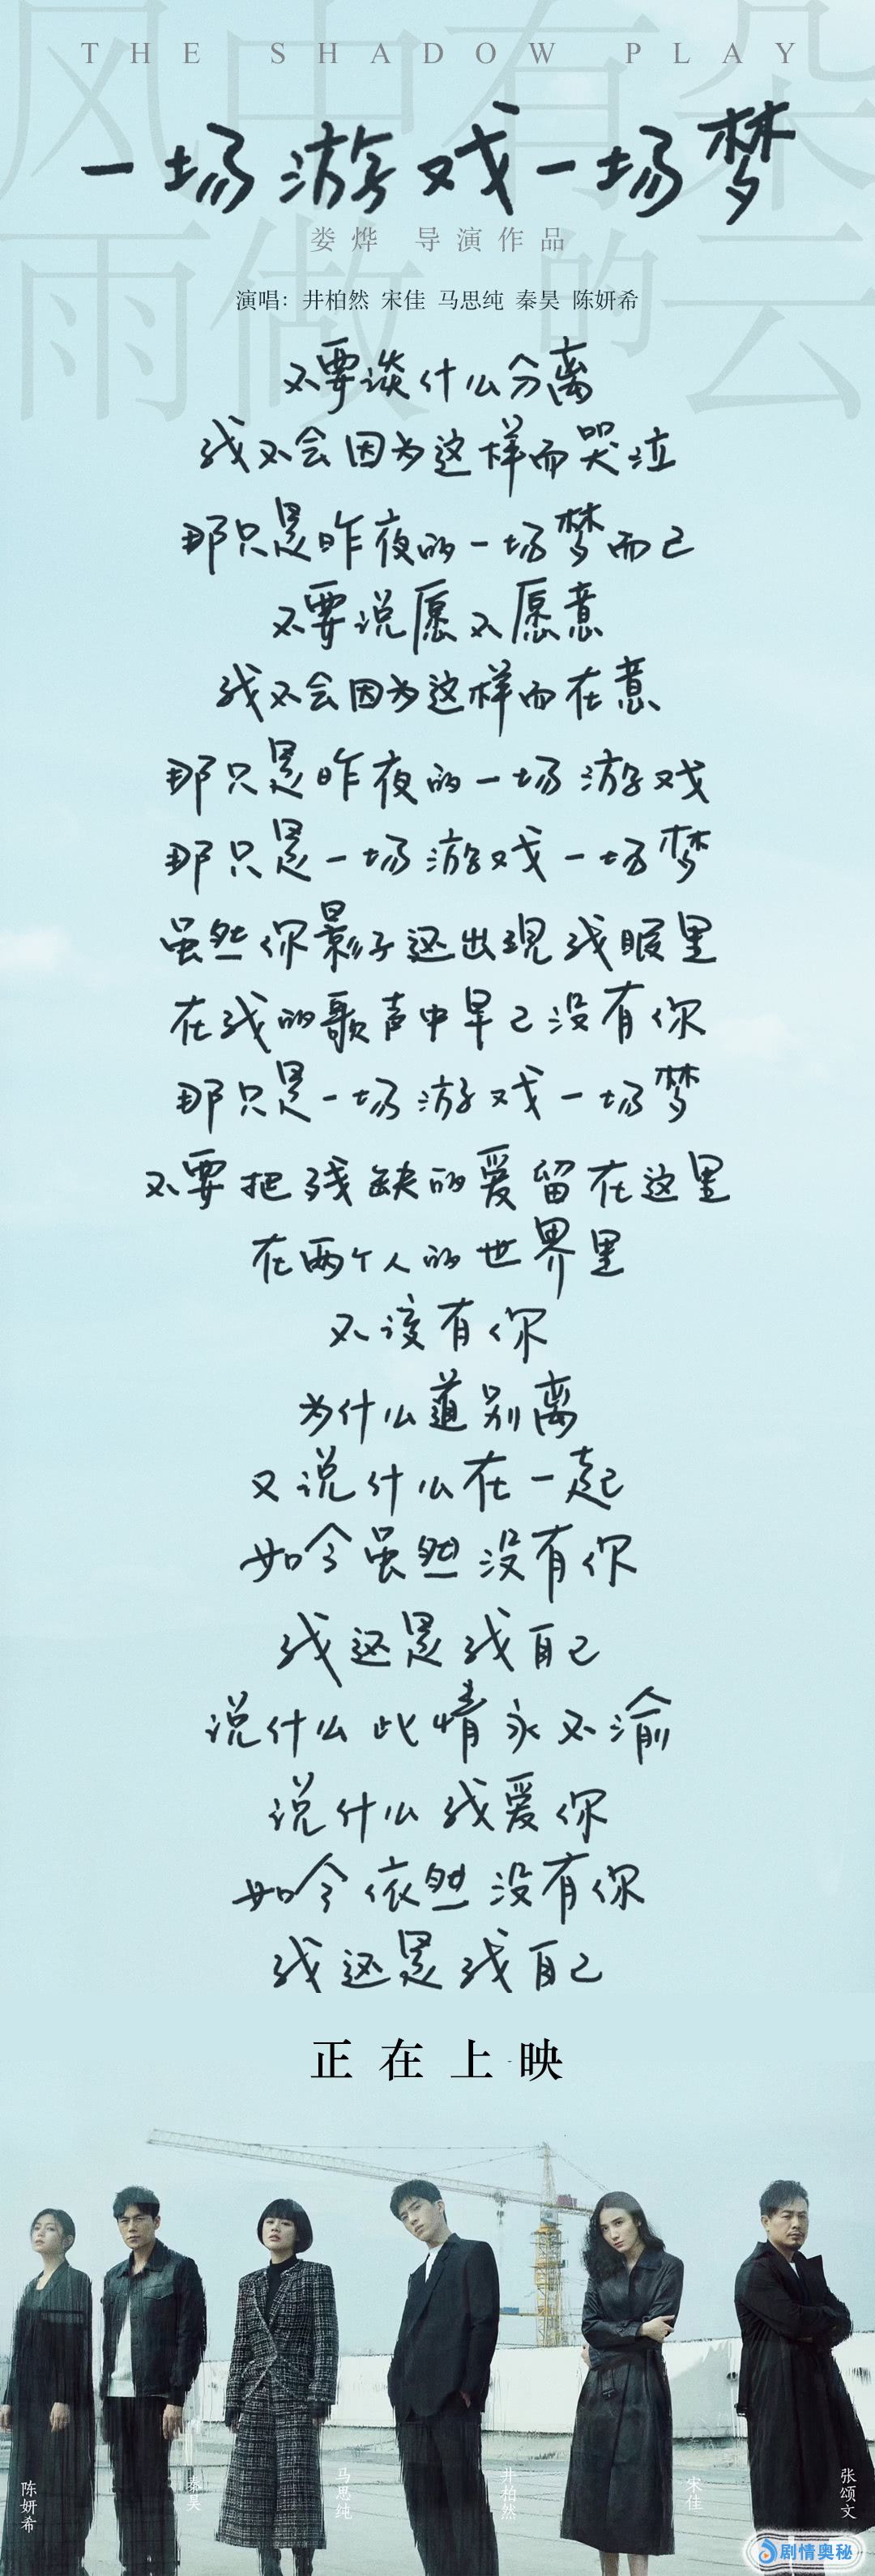 THE SHADOW PLAY
风中有朵
雨做的云
一场游戏一场梦
娄烨 导演作品
演唱：井柏然 宋佳 马思纯 秦昊 陈妍希
不要谈什么分离
我不会因为这样而哭泣
那只是昨夜的一场梦而已
不要说愿不愿意
我不会因为这样而在意
那只是昨夜的一场游戏
那只是一场游戏一场梦
虽然你影子还出现我眼里
在我的歌声中早已没有你
那只是一场游戏一场梦
不要把残缺的爱留在这里
在两个人的世界里
不该有你
为什么道别离
又说什么在一起
如今虽然没有你
我还是我自己
说什么此情永不渝
说什么我爱你
如今依然没有你
我还是我自己
正在上映
陈妍希
秦昊
马思纯
井柏然
宋佳
张颂文
剧情奥秘